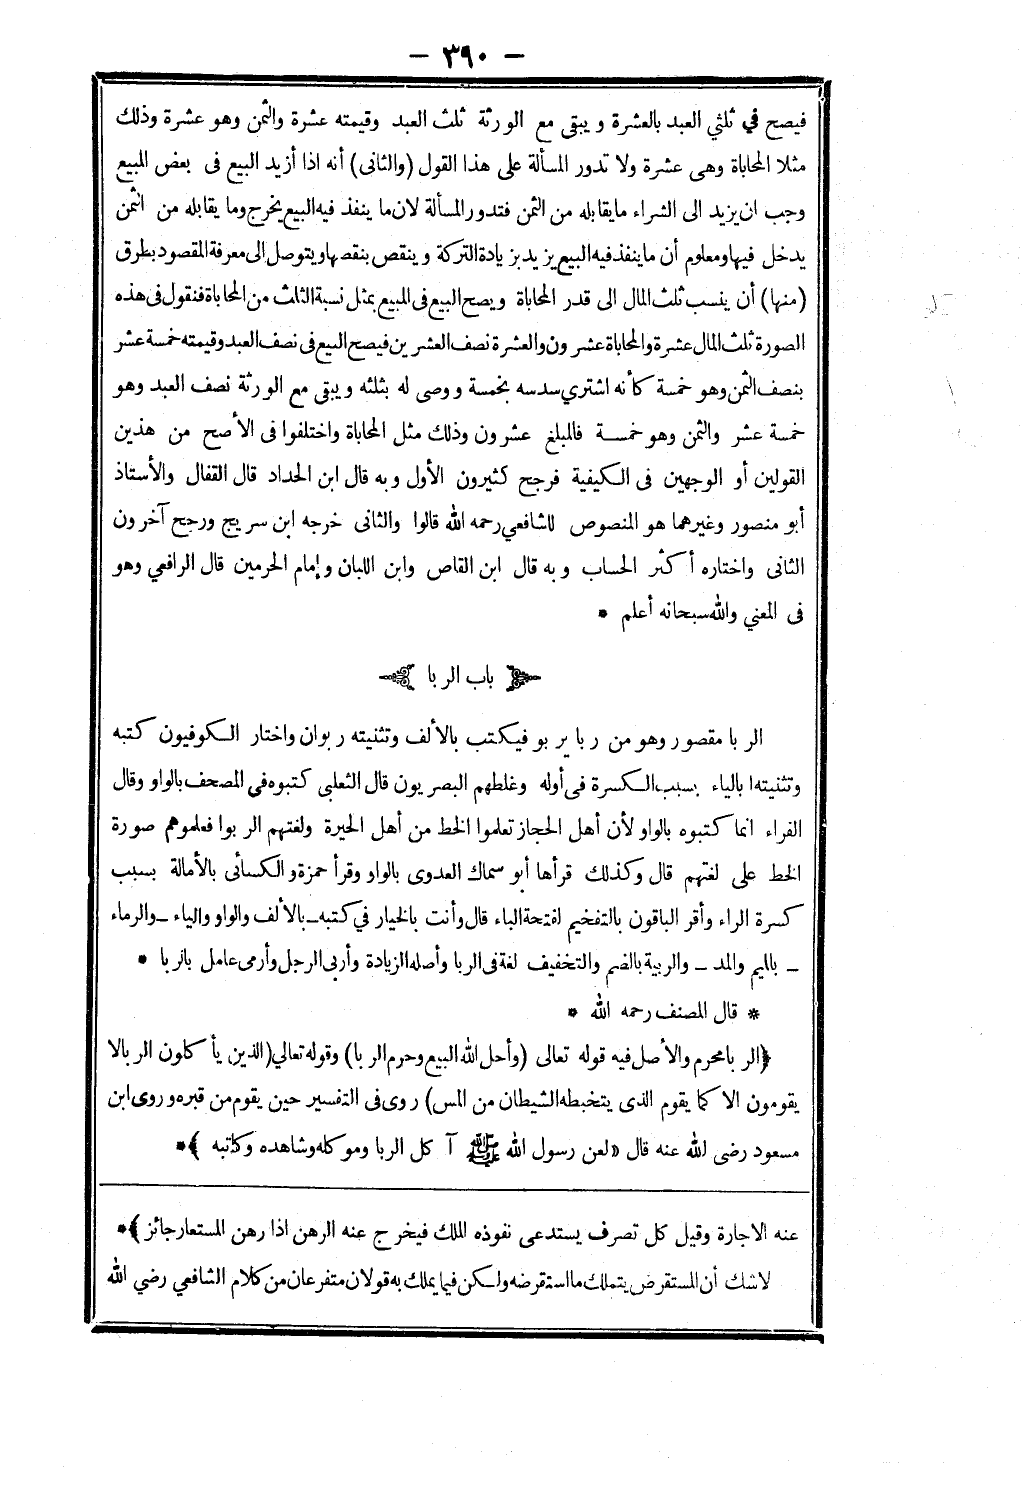 — ٣٩٠ —
فيصح في ثلثي العبد بالعشرة ويبقى مع الورثة ثلث العبد وقيمته عشرة والثمن وهو عشرة وذلك
مثلا المحاباة وهى عشرة ولا تدور المسألة على هذا القول (والثانى) أنه اذا أزيد البيع فى بعض المبيع
وجب ان يزيد الى الشراء مايقابله من الثمن فتدور المسألة لان ما ينفذ فيه البيع يخرج وما يقابله من الثمن
يدخل فيها ومعلوم أن ما ينفذ فيه البيع يزيد بزيادة التركة وينقص بنقصها ويتوصل الى معرفة المقصود بطرق
(منها) أن ينسب ثلث المال الى قدر المحاباة ويصح البيع فى المبيع بمثل نسبة الثلث من المحاباة فنقول فى هذه
الصورة ثلث المال عشرة والمحاباة عشرون والعشرة نصف العشرين فيصح البيع فى نصف العبد وقيمته خمسة عشر
بنصف الثمن وهو خمسة كأنه اشتري سدسه بخمسة ووصى له بثلثه ويبقى مع الورثة نصف العبد وهو
خمسة عشر والثمن وهو خمسة فالمبلغ عشرون وذلك مثل المحاباة واختلفوا فى الأصح من هذين
القولين أو الوجهين فى الكيفية فرجح كثيرون الأول وبه قال ابن الحداد قال القفال والأستاذ
أبو منصور وغيرهما هو المنصوص للشافعي رحمه الله قالوا والثانى خرجه ابن سريج ورجح آخرون
الثانى واختاره أكثر الحساب وبه قال ابن القاص وابن اللبان وإمام الحرمين قال الرافعي وهو
فى المعني والله سبحانه أعلم *
باب الربا
الربا مقصور وهو من ربا يربو فيكتب بالألف وتثنيته ربوان واختار الكوفيون كتبه
وتثنيته ا بالياء بسبب الكسرة فى أوله وغلطهم البصريون قال الثعلبى كتبوه في المصحف بالواو وقال
الفراء انما كتبوه بالواو لأن أهل الحجاز تعلموا الخط من أهل الحيرة ولغتهم الربوا فعلموهم صورة
الخط على لغتهم قال وكذلك قرأها أبو سماك العدوى بالواو وقرأ حمزة والكسائى بالأمالة بسبب
كسرة الراء وأقر الباقون بالتفخيم لفتحة الباء قال وأنت بالخيار في كتبه – بالألف والواو والياء – والرماء
– بالميم والمد – والربية بالضم والتخفيف لغة فى الربا وأصله الزيادة وأربى الرجل وأرمى عامل بالربا *
* قال المصنف رحمه الله *
﴿الربا محرم والأصل فيه قوله تعالى (وأحل الله البيع وحرم الربا) وقوله تعالي (الذين يأكلون الربا لا
يقومون الا كما يقوم الذى يتخبطه الشيطان من المس) روى فى التفسير حين يقوم من قبره وروى ابن
مسعود رضى الله عنه قال «لعن رسول الله ﷺ آكل الربا وموكله وشاهده وكاتبه ﴾*
عنه الاجارة وقيل كل تصرف يستدعى نفوذه الملك فيخرج عنه الرهن اذا رهن المستعار جائز ﴾*
لاشك أن المستقرض يتملك ما استقرضه ولكن فيما يملك به قولان متفرعان من كلام الشافعي رضي الله